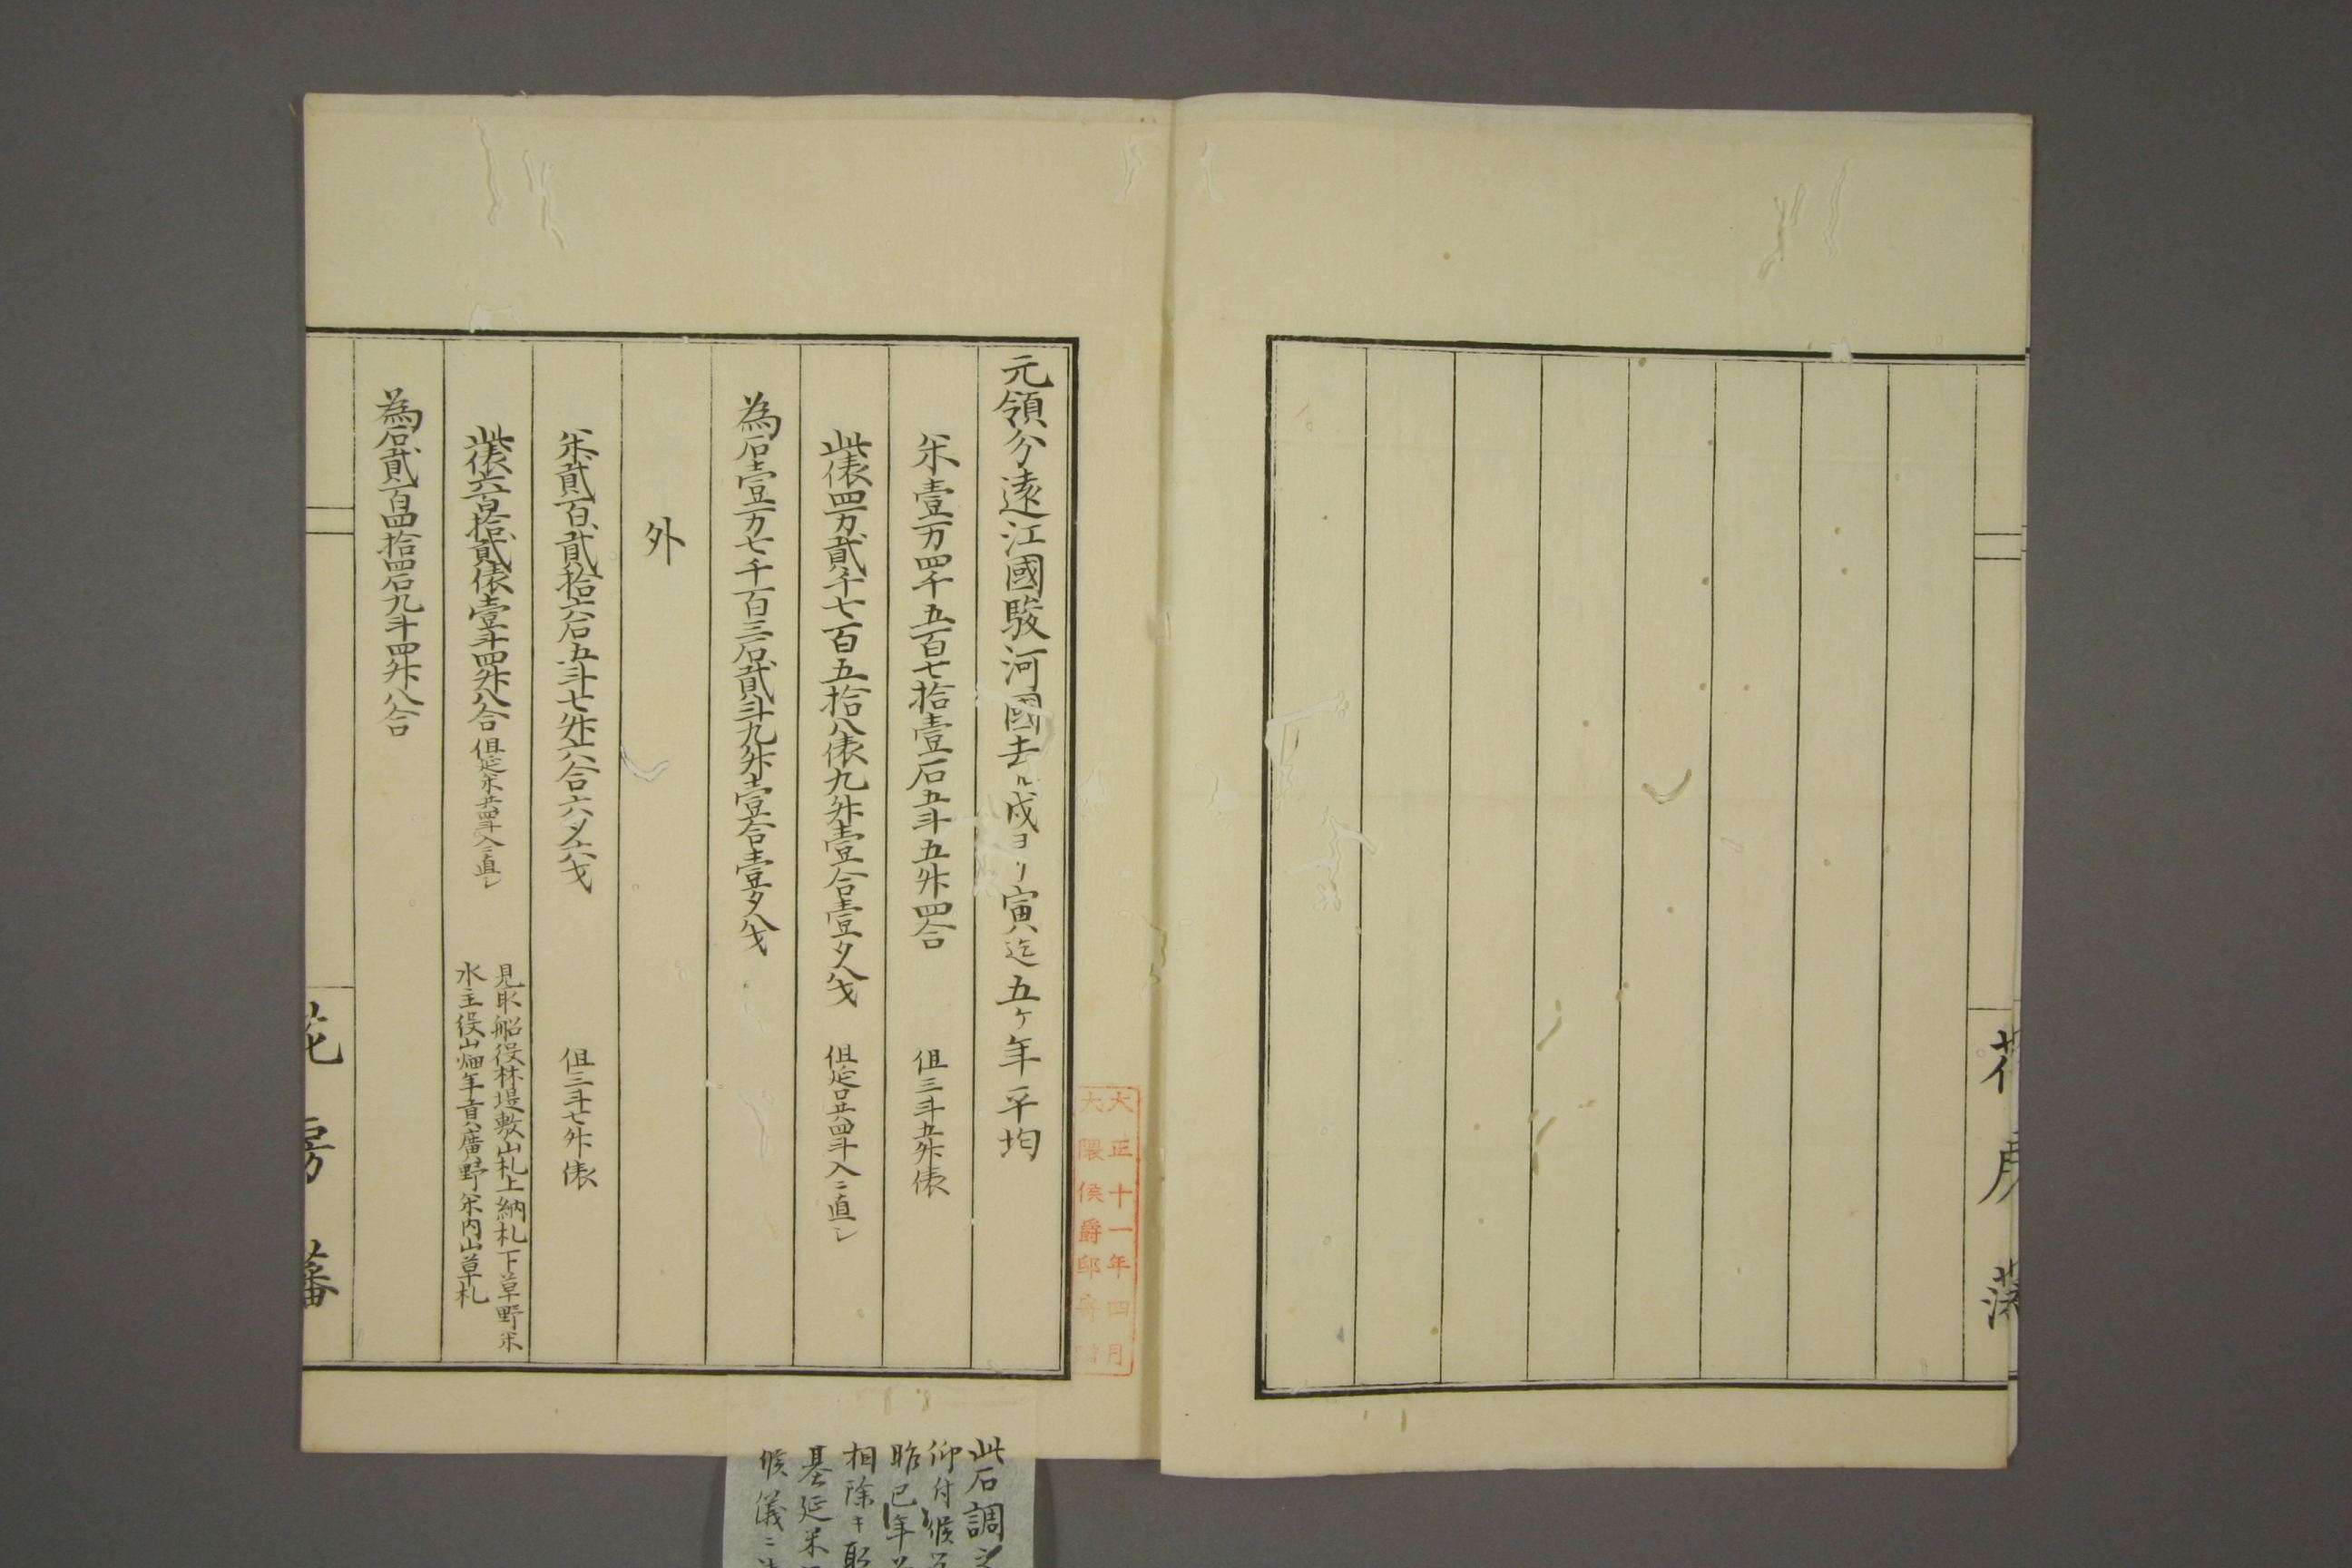 元領分遠江國駿河國去ル戌ヨリ寅迄五ケ年平均
米壹万四千五百七拾壹石五斗五升四合 但三斗五升俵
此俵四万貳千七百五拾八俵九升壹合壹夕八戈 但延口共四斗入ニ直シ
為石壹万七千百三石貳斗九升壹合壹夕八戈
外
米貳百貳拾六石五斗七升六合六夕六戈 但三斗七升俵
此俵六百拾貳俵壹斗四升八合 但延米共四斗入ニ直シ
見取船役林堤敷山札上納札下草野米
水主役山畑年貢廣野米内山草札
為石貳百四拾四石九斗四升八合
花房藩
大正十一年四月
大隈侯爵邸寄贈
此石調
仰付候
昨巳年
相除キ
基延米
候儀ニ
花房藩